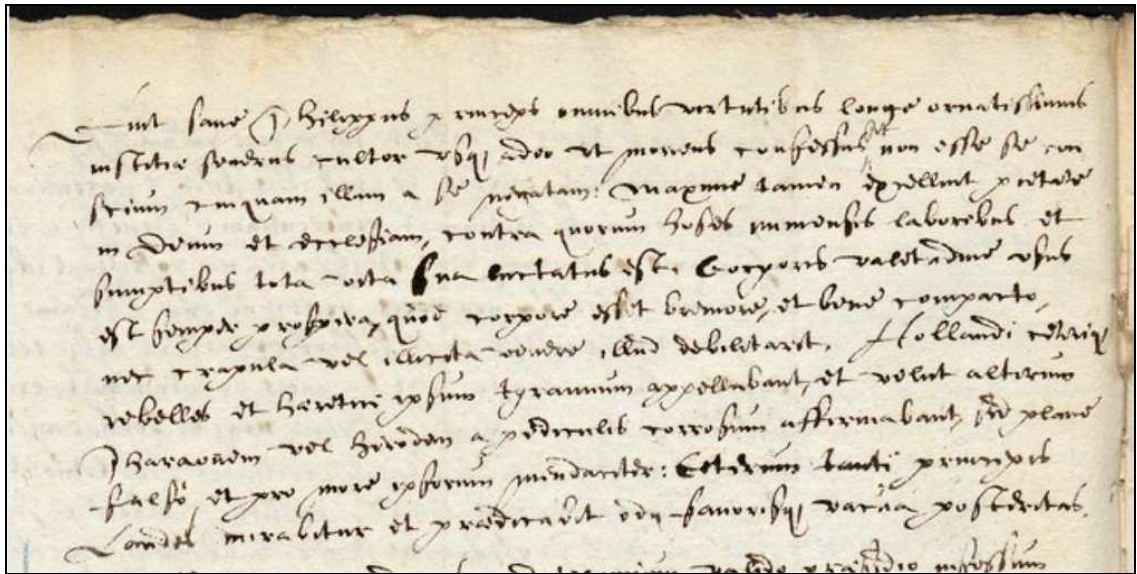 Fuit sane Philippus princeps omnibus virtutibus longe ornatissimus
iustitiæ severus cultor usq; adeo ut moriens confessus sit non esse se con
scium cuiquam illam a se negatam: maxime tamen excelluit pietate
in Deum et ecclesiam, contra quorum hostes immensis laboribus et
sumptibus tota vita sua luctatus est. Corporis valetudine usus
est semper prospera, quod corpore esset breviore, et bene compacto,
nec crapula vel illicita venere illud debilitarit. Hollandi ceteriq;
rebelles et hæretici ipsum tyrannum appellabant, et velut alterum
Pharaonem vel Herodem a pediculis corrosum affirmabant, sed plane
falso et pro more ipsorum mendaciter: Ceterum tanti principis
Laudes mirabitur et prædicabit odij favorisq; vacua posteritas.